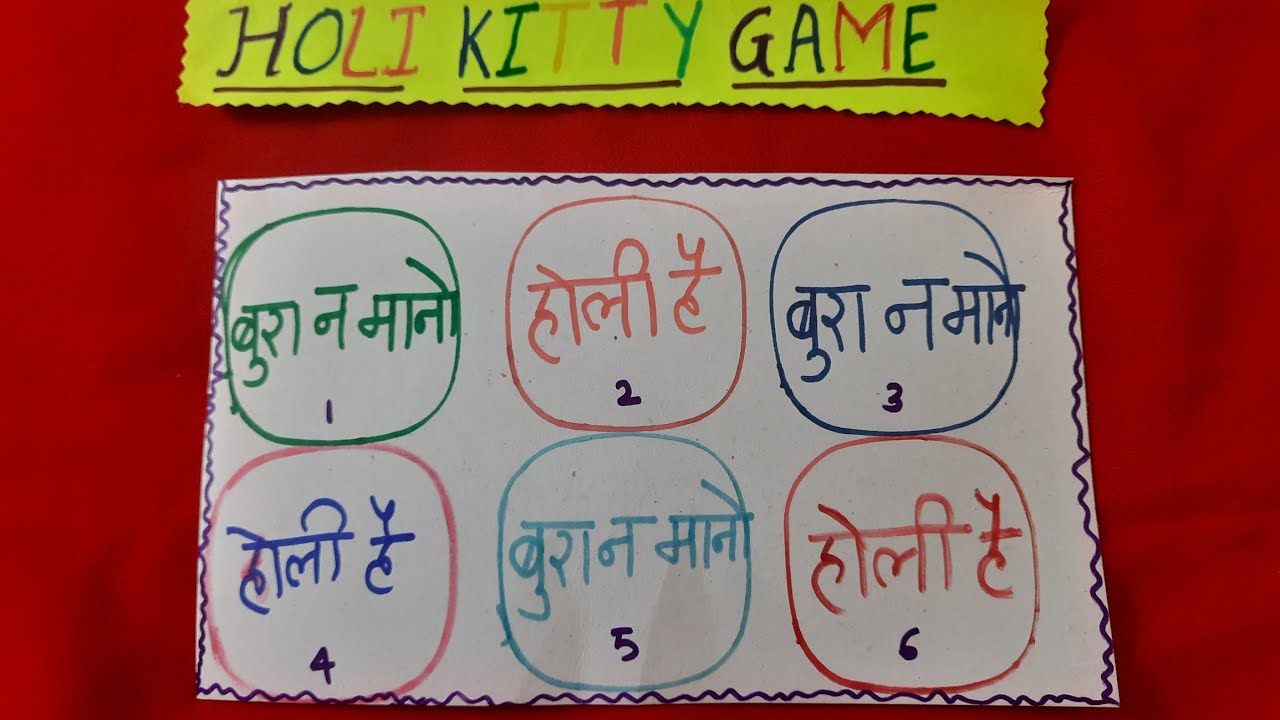 HOLI KITTY GAME
बुरा न मानो
1
होली है
2
बुरा न मानो
3
होली है
4
बुरा न मानो
5
होली है
6